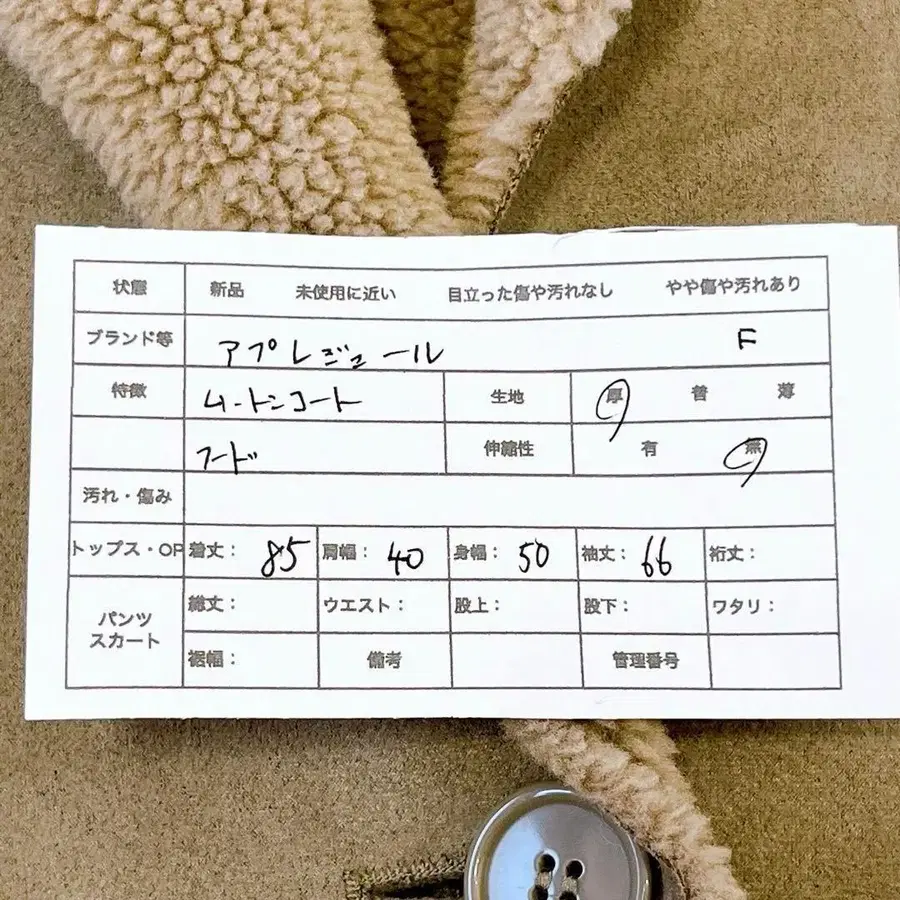 状態 新品 未使用に近い 目立った傷や汚れなし やや傷や汚れあり
ブランド等 アプレジュール F
特徴 ムートンコート 生地 厚 普 薄
フード 伸縮性 有 無
汚れ・傷み
トップス・OP 着丈： 85 肩幅： 40 身幅： 50 袖丈： 66 裄丈：
パンツ スカート 総丈： ウエスト： 股上： 股下： ワタリ：
裾幅： 備考 管理番号